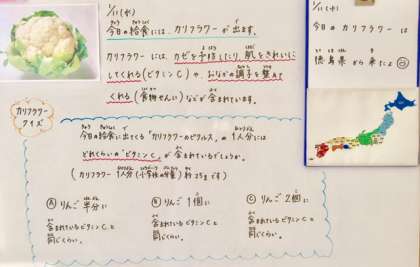 1/11(水)
今日の給食には、カリフラワーが出ます。
カリフラワーには、カゼを予防したり、肌をきれいに
してくれる(ビタミンC)や、おなかの調子を整えて
くれる(食物せんい)などが含まれています。
1/11(水)
今日のカリフラワーは
徳島県から来たよ
カリフラワー
クイズ
今日の給食に出てくる「カリフラワーのピクルス」の1人分には
どれくらいの"ビタミンC"が含まれているでしょうか。
(カリフラワー1人分(小学校の分量)約25gです)
Ⓐ りんご半分に
含まれているビタミンCと
同じくらい。
Ⓑ りんご1個に
含まれているビタミンCと
同じくらい。
Ⓒ りんご2個に
含まれているビタミンCと
同じくらい。